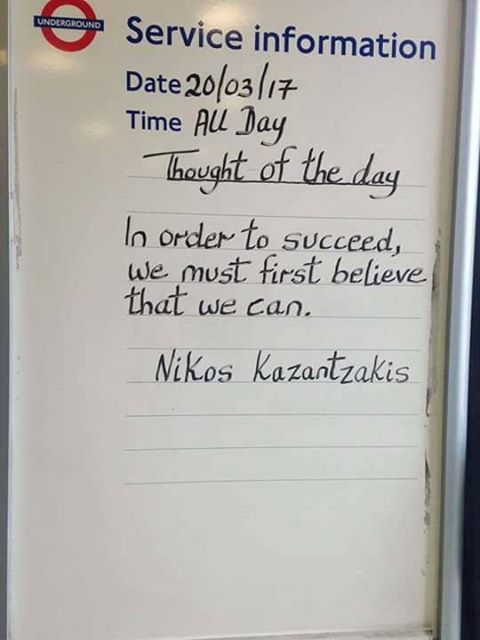 UNDERGROUND
Service information
Date 20/03/17
Time All Day
Thought of the day
In order to succeed,
we must first believe
that we can.
Nikos Kazantzakis